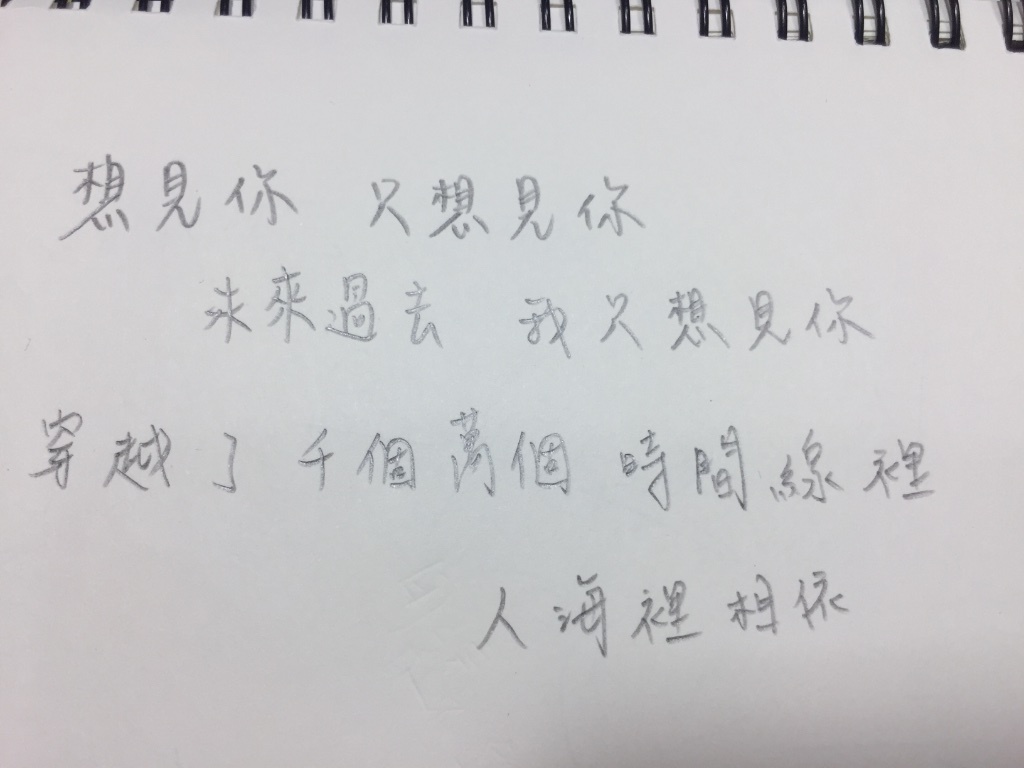 想見你 只想見你
未來過去 我只想見你
穿越了 千個萬個 時間線裡
人海裡相依